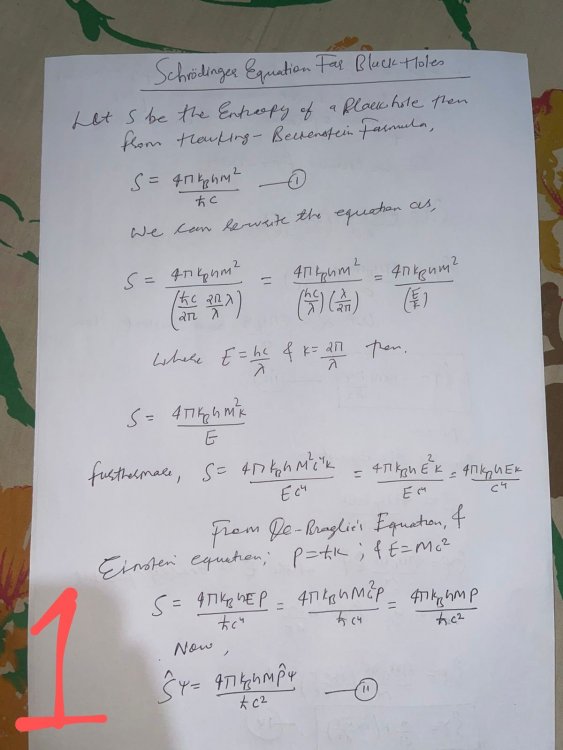 Schrödinger Equation For Black Holes
Let S be the Entropy of a Black hole then
from Hawking-Beckenstein Formula,
S = 4πk_BhM²/ħc — (I)
We can rewrite the equation as,
S = 4πk_BhM²/(ħc/2π 2π/λ λ) = 4πk_BhM²/((hc/λ)(λ/2π)) = 4πk_BhM²/(E/k)
where E = hc/λ & k = 2π/λ then.
S = 4πk_BhM²k/E
furthermore, S = 4πk_BhM²c⁴k/Ec⁴ = 4πk_BhE²k/Ec⁴ = 4πk_BhEk/c⁴
From De-Broglie's Equation, &
Einstein equation; P = ħk ; & E = Mc²
S = 4πk_BhEP/ħc⁴ = 4πk_BhMc²P/ħc⁴ = 4πk_BhMP/ħc²
Now,
Ŝψ = 4πk_BhMP̂ψ/ħc² — (II)
1